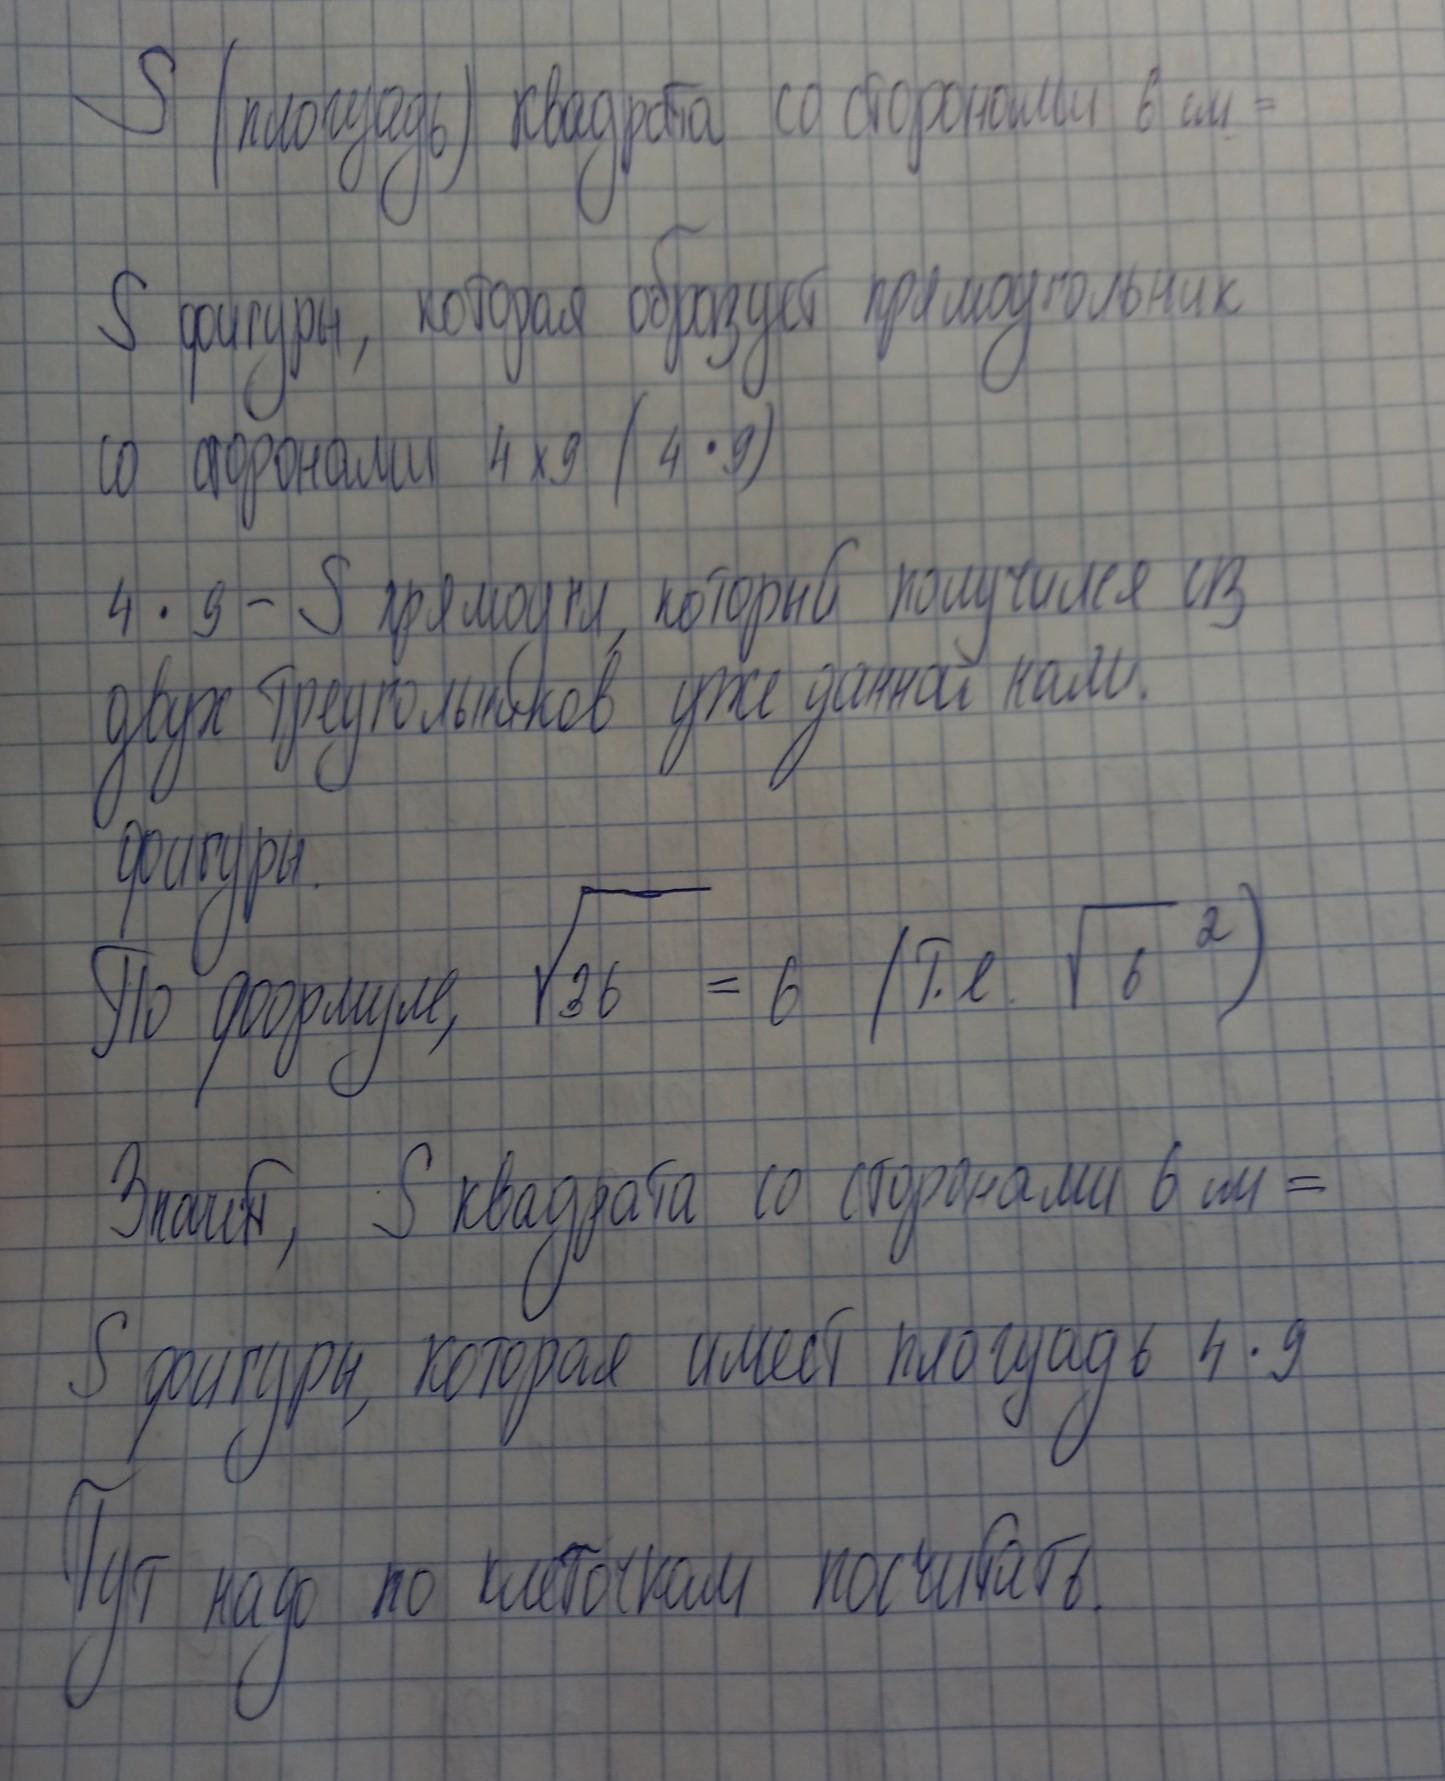 S (площадь) квадрата со сторонами 6 см =
S фигуры, которая образует прямоугольник
со сторонами 4х9 (4 · 9)
4 · 9 – S прямоугл, который получился из
двух треугольников уже данной нами.
фигуры.
По формуле, √36 = 6 (т.е. √6 ²)
Значит, S квадрата со сторонами 6 см =
S фигуры, которая имеет площадь 4 · 9
Тут надо по клеточкам посчитать.